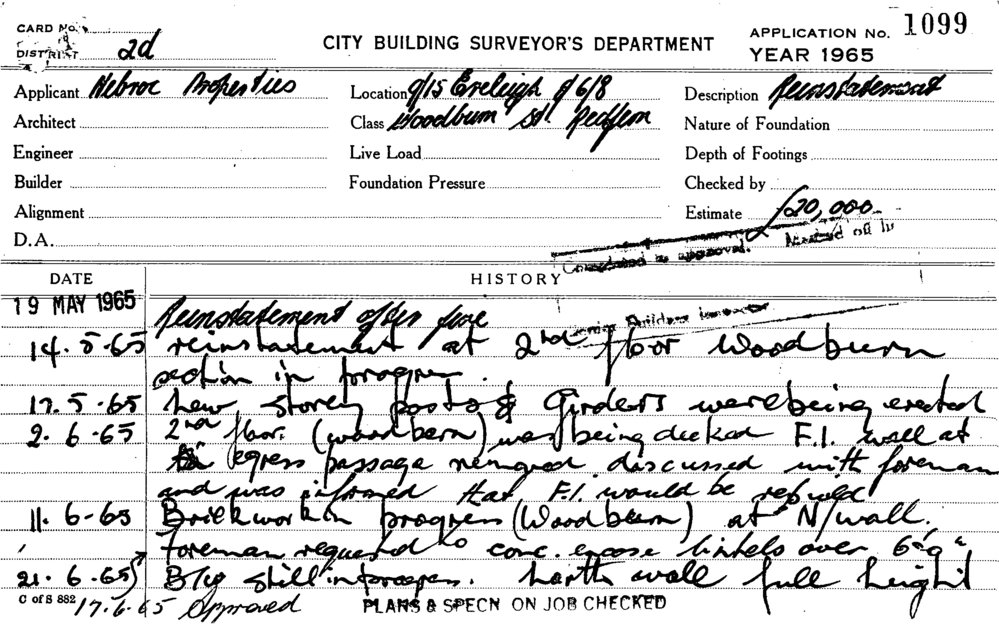 CARD No.
DISTRICT 2d
CITY BUILDING SURVEYOR'S DEPARTMENT
APPLICATION No. 1099
YEAR 1965
Applicant Nebroc Properties
Location 9/15 Eveleigh & 6/8
Description Reinstatement
Architect
Class Woodburn St. Redfern
Nature of Foundation
Engineer
Live Load
Depth of Footings
Builder
Foundation Pressure
Checked by
Alignment
Estimate £20,000
D.A.
Completed as approved.
DATE
HISTORY
19 MAY 1965
Reinstatement after fire
14.5.65 reinstatement at 2nd floor Woodburn
section in progress.
17.5.65 new storey posts & Girders were being erected
2.6.65 2nd floor. (woodburn) was being decked F.I. wall at
egress passage discussed with foreman
and was informed that F.I. would be
11.6.65 Brickwork in progress (Woodburn) at N/wall.
foreman requested to conc. encase lintels over 6'9"
21.6.65 B/W still in progress. north wall full height
C of S 882 17.6.65 Approved
PLANS & SPECN ON JOB CHECKED